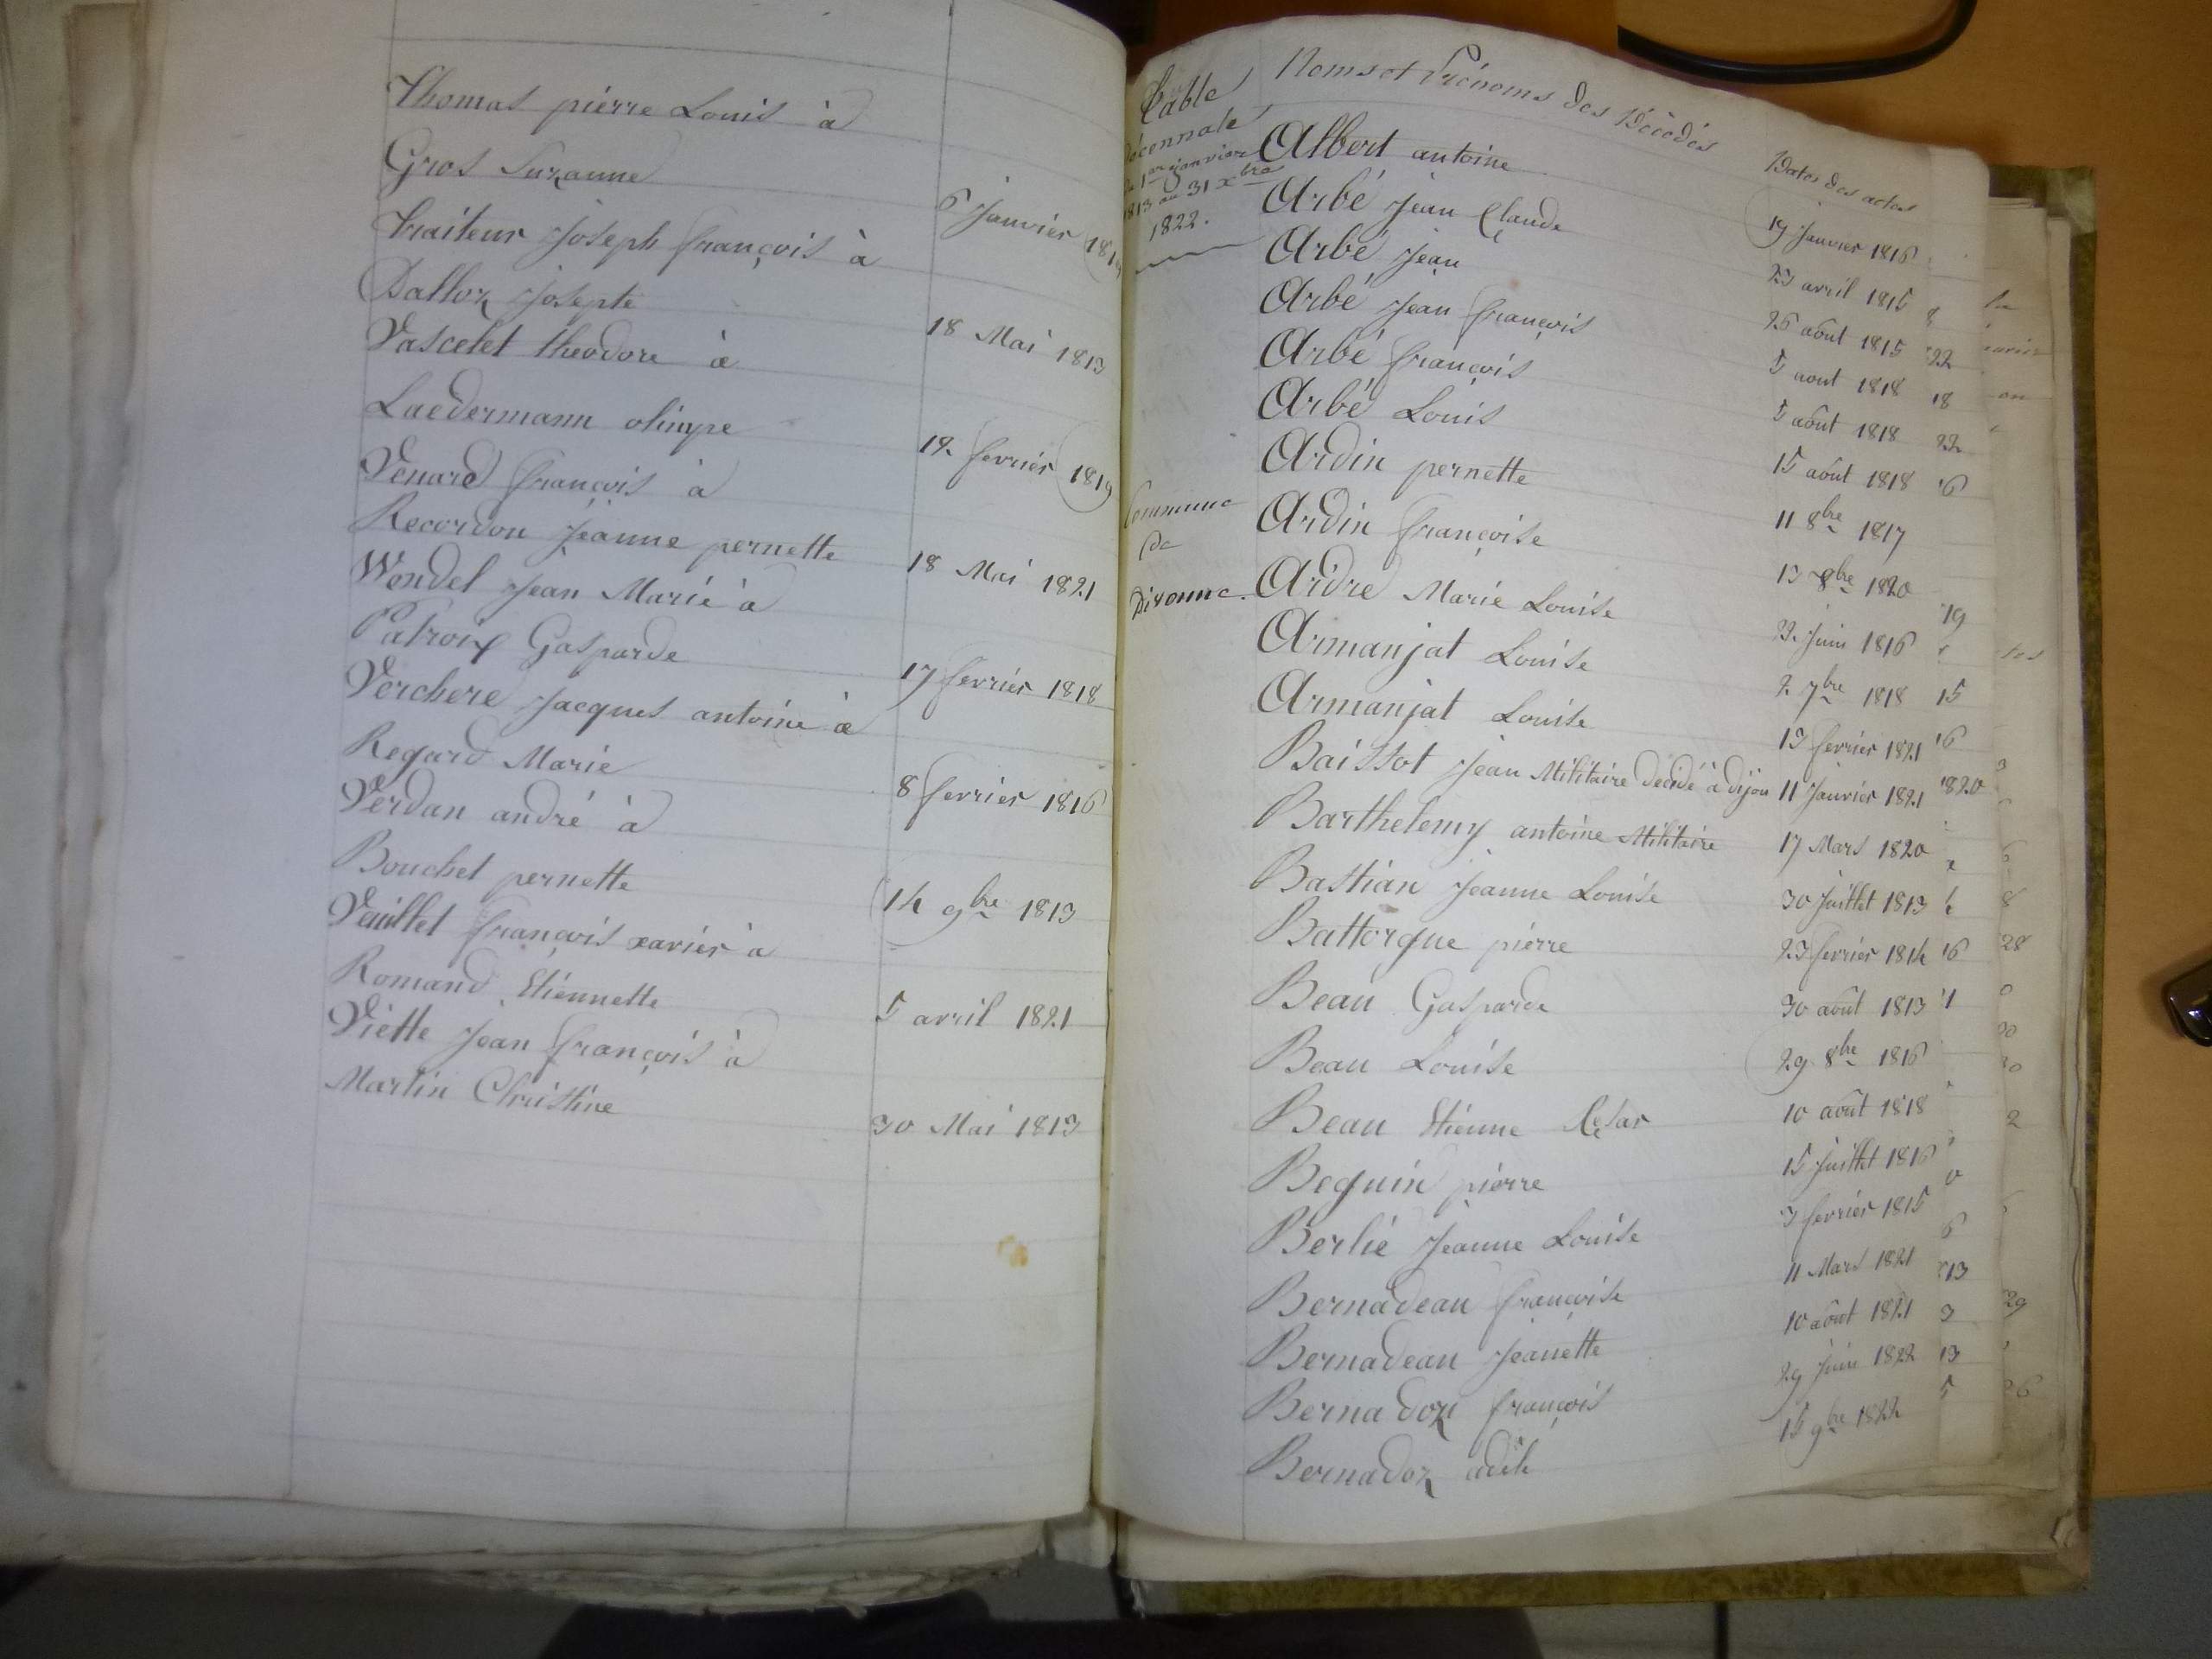 Thomas pierre Louis à
Gros Suzanne
6 Janvier 1819
Traiteur Joseph françois à
Dalloz Josepte
18 Mai 1813
Vascelet théodore à
Laedermann olimpe
12 fevrier 1819
Venard françois à
Recordon Jeanne pernette
18 Mai 1821
Wendel Jean Marie à
Patroix Gasparde
17 fevrier 1818
Verchere Jacques antoine à
Regard Marie
8 fevrier 1816
Verdan andré à
Bouchet pernette
14 9bre 1813
Vuillet françois xavier à
Romand Etiennette
5 avril 1821
Viette Jean françois à
Martin Christine
30 Mai 1813
Table
décennale
du 1er janvier
1813 au 31 xbre
1822.
Commune
de
Divonne.
Noms et Prénoms des Décédés
Dates des actes
Albert antoine 19 Janvier 1816
Arbé Jean Claude 23 avril 1815
Arbé Jean 26 août 1815
Arbé Jean françois 5 aout 1818
Arbé françois 5 août 1818
Arbé Louis 15 août 1818
Ardin pernette 11 8bre 1817
Ardin françoise 13 8bre 1820
Ardre Marie Louise Juin 1816
Armanjat Louise 2 7bre 1818
Armanjat Louise 13 fevrier 1821
Baissot Jean Militaire décédé à dijon 11 Janvier 1821
Barthelemy antoine Militaire 17 Mars 1820
Bastian Jeanne Louise 30 Juillet 1813
Battorque pierre 23 fevrier 1814
Beau Gasparde 30 août 1813
Beau Louise 29 8bre 1816
Beau Etienne Cesar 10 août 1818
Beguin pierre 15 Juillet 1816
Berlié Jeanne Louise 3 fevrier 1815
Bernadeau françoise 11 Mars 1821
Bernadeau Jeanette 10 août 1821
Bernadoz françois 29 Juin 1822
Bernadoz adèle 15 9bre 1822